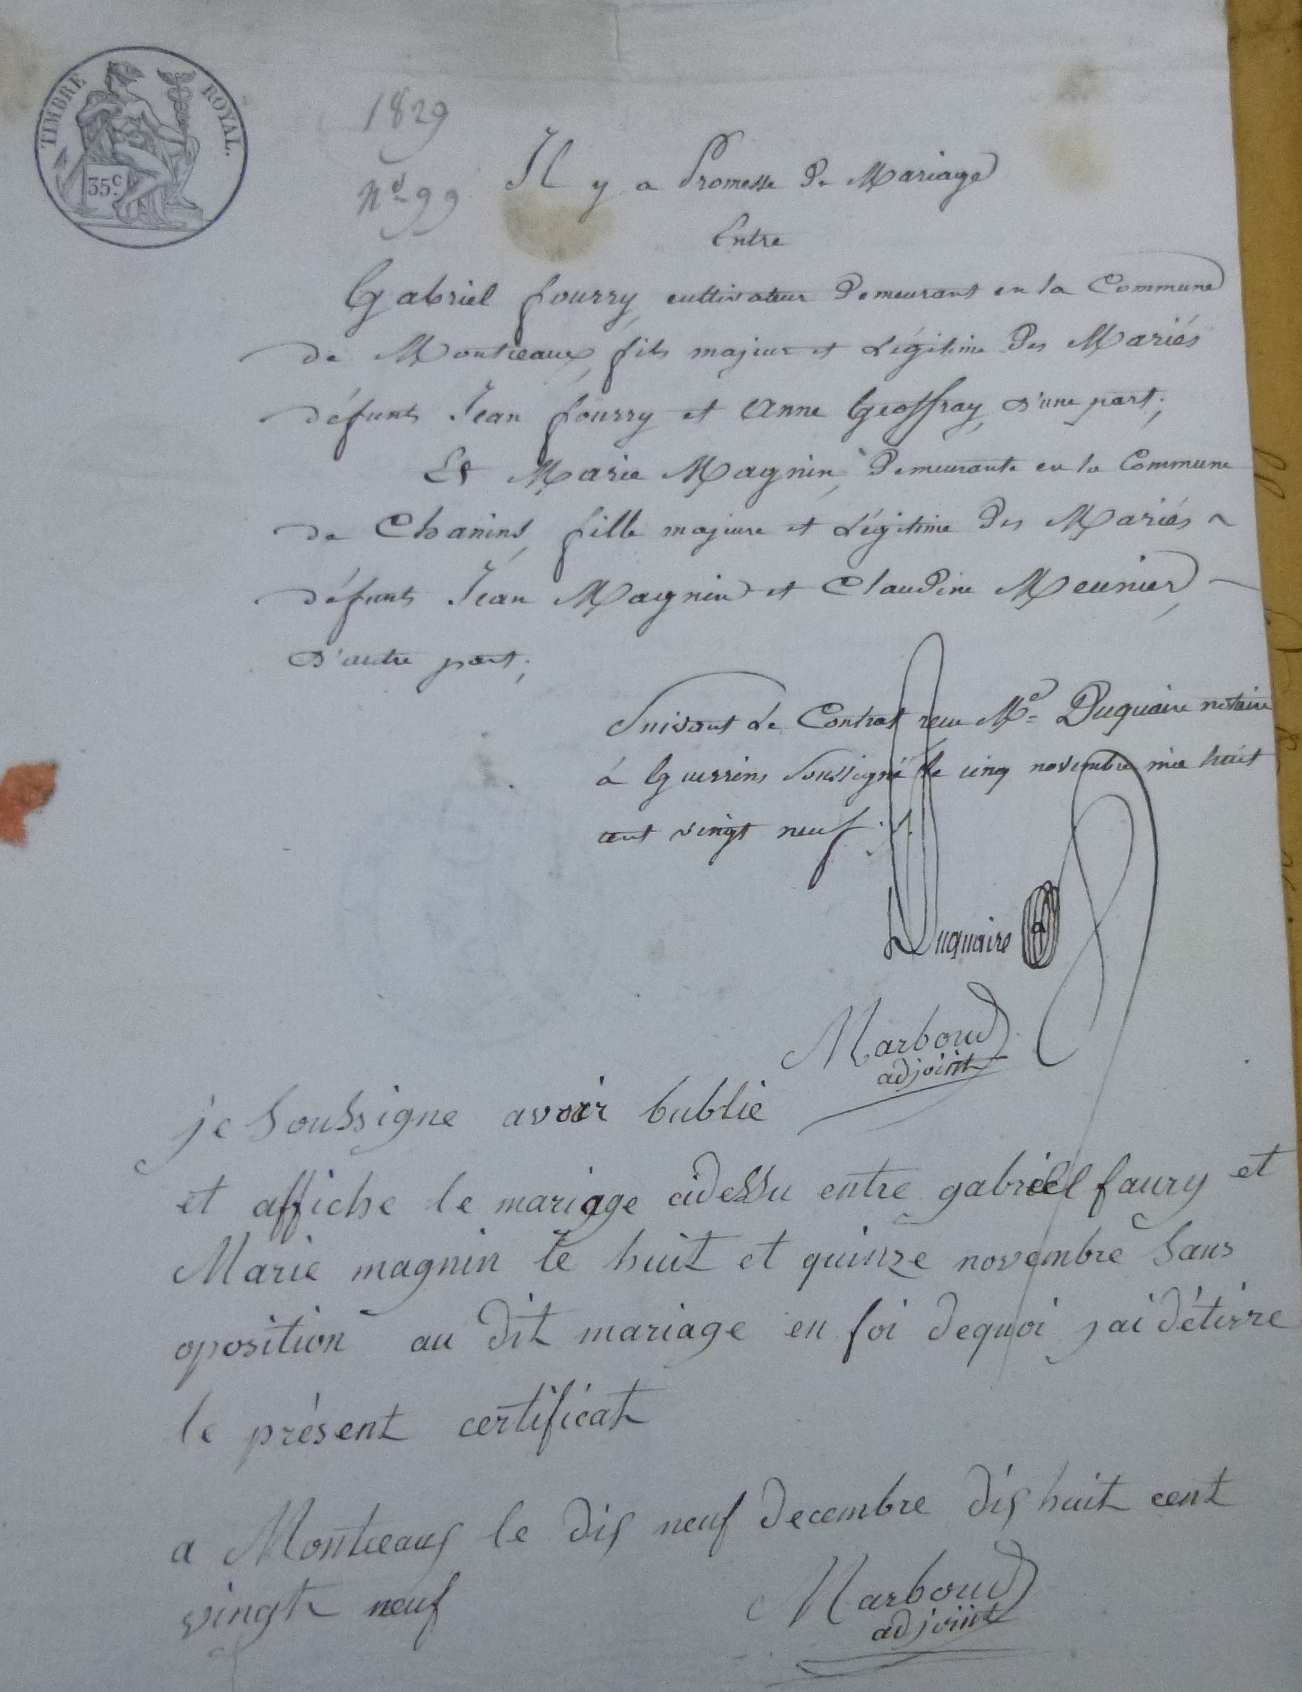 TIMBRE ROYAL.
35 c.
1829
N° 99
Il y a Promesse de Mariage
Entre
Gabriel fourry, cultivateur demeurant en la Commune
de Montceaux, fils majeur et Légitime des Mariés
défunts Jean fourry et Anne Geoffray, d'une part;
Et Marie Magnin, demeurante en la Commune
de Chanins, fille majeure et Légitime des Mariés
défunts Jean Magnin et Claudine Meunier,
d'autre part;
Suivant Le Contrat reçu Me Duquaire notaire
à Guerrins Soussigné le cinq novembre mil huit
cent vingt neuf.
Duquaire
Marboud
adjoint
je Soussigne avoir bublie
et affiche le mariage cidessu entre gabriel faury et
Marie magnin le huit et quinze novembre Sans
oposition au dit mariage en foi dequoi jai détivre
le présent certificat
a Montceaux le dix neuf decembre dix huit cent
vingt neuf
Marboud
adjoint